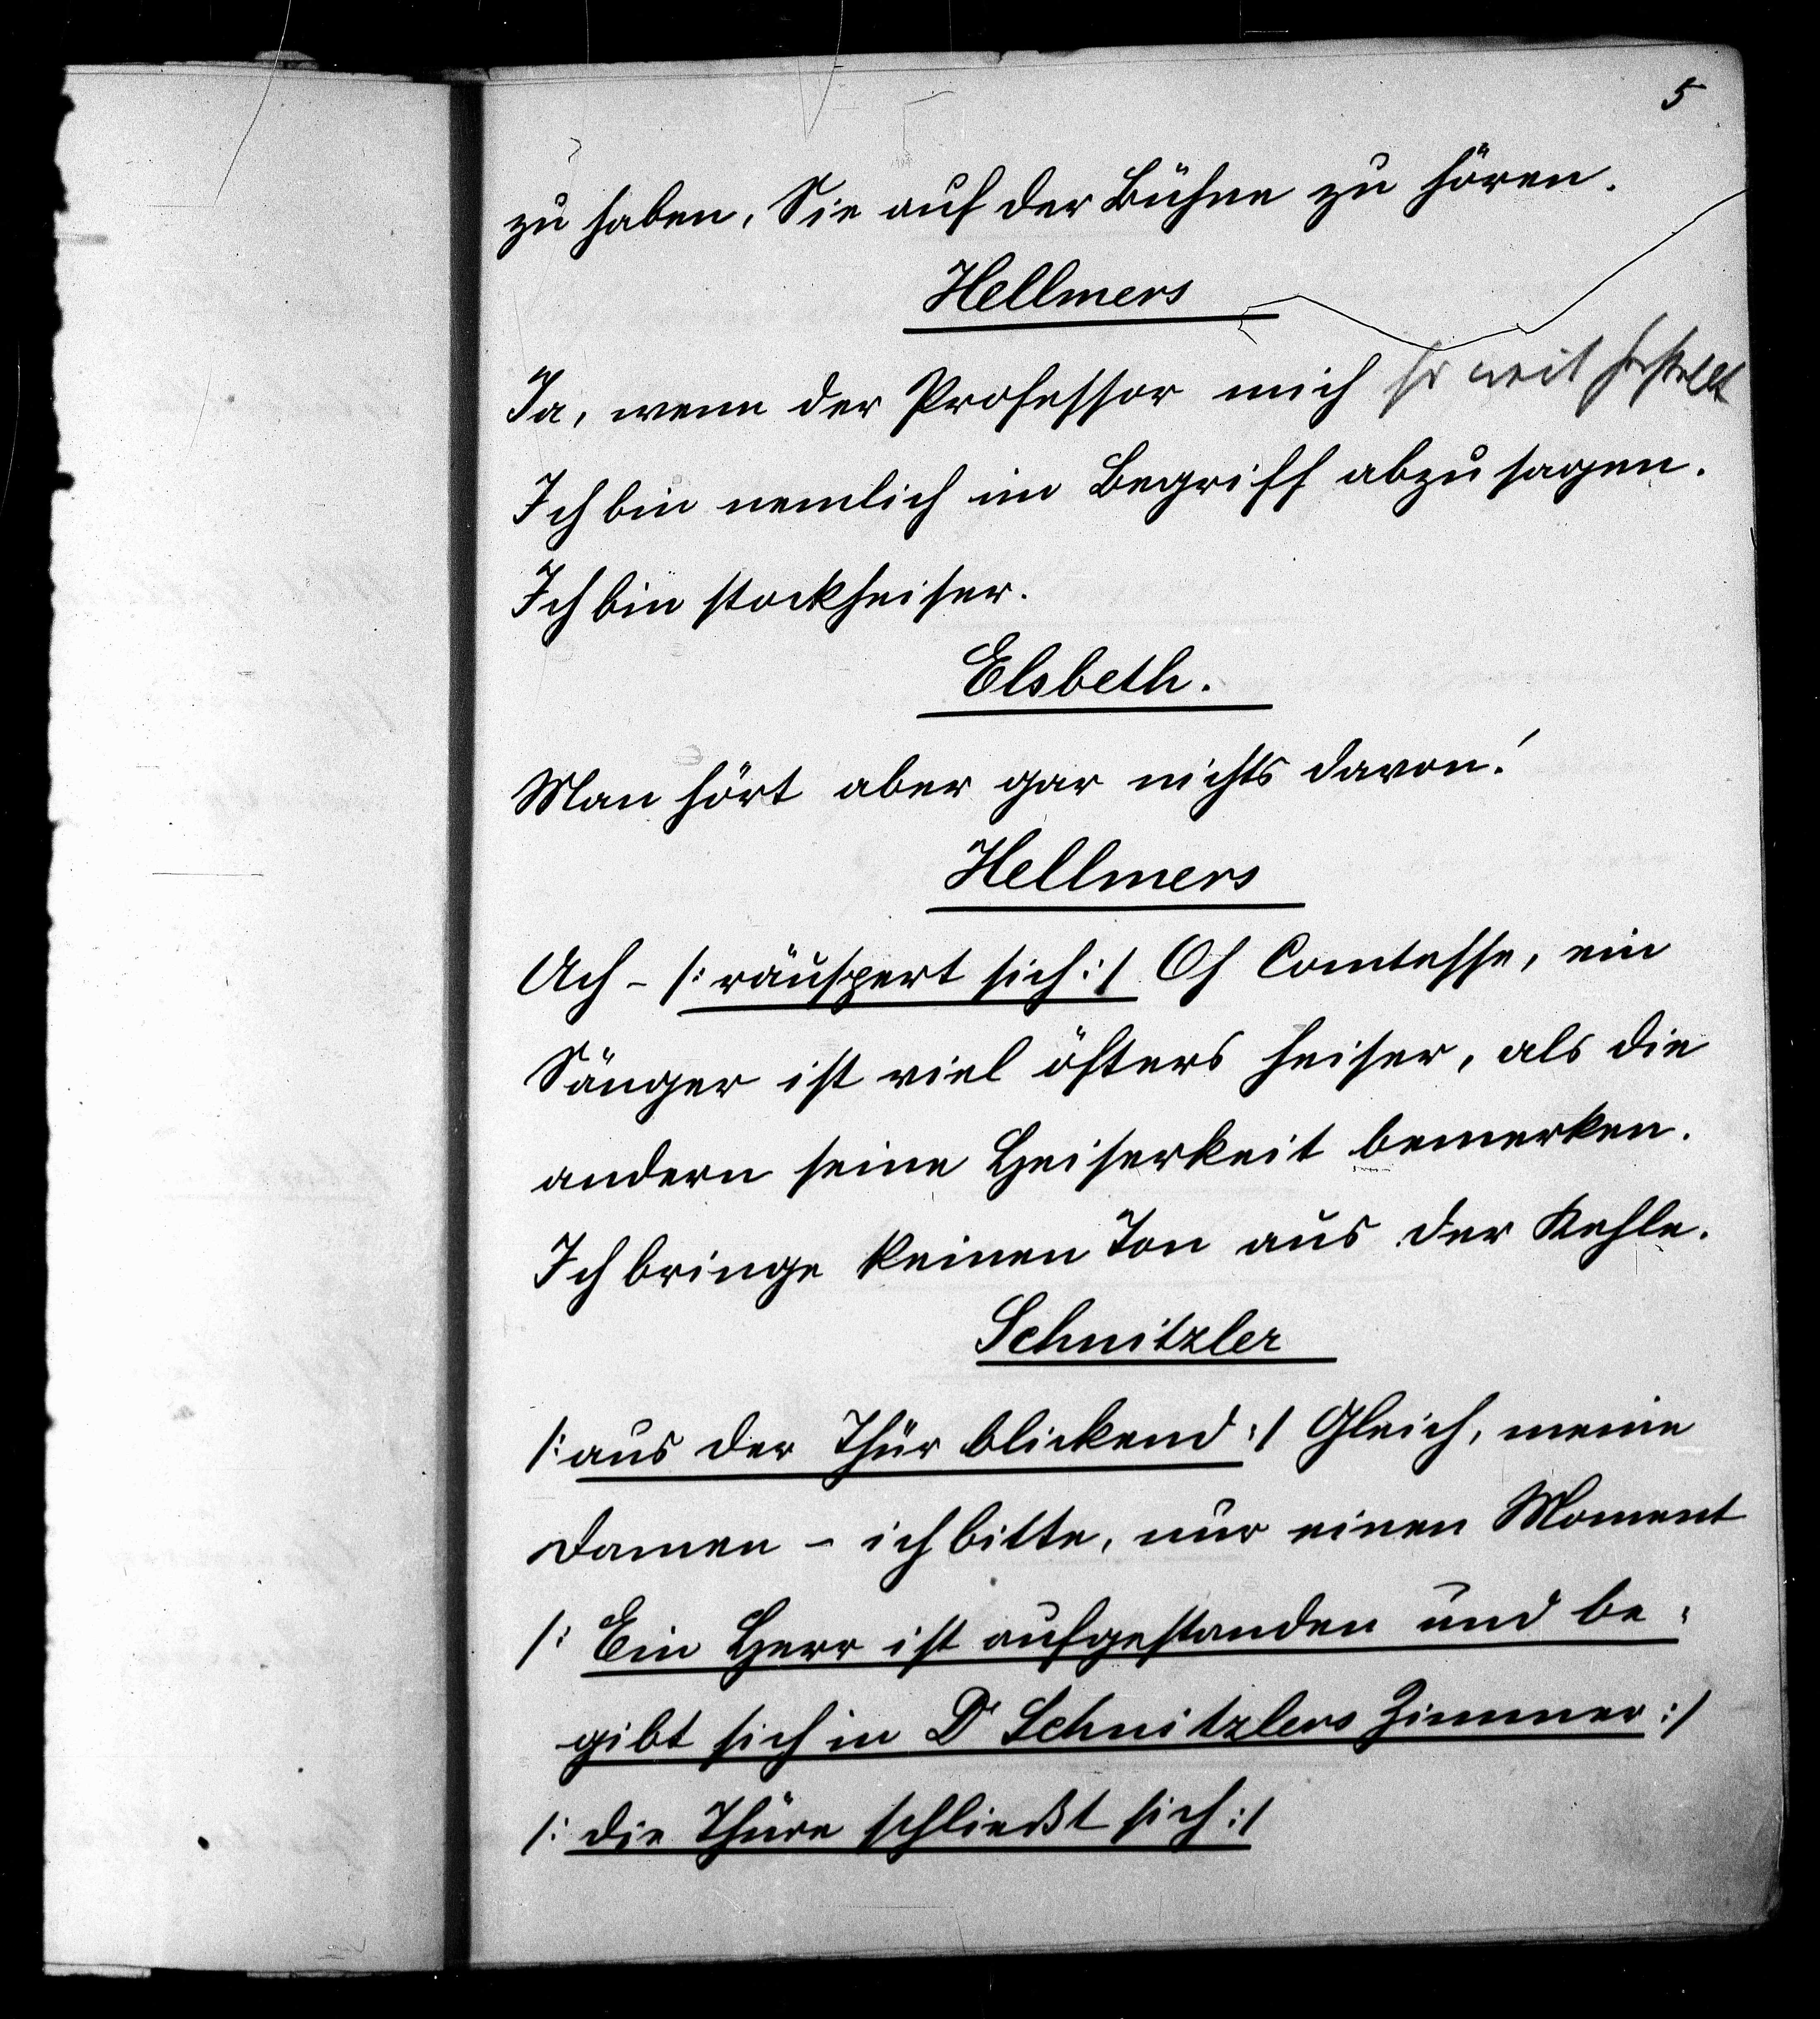 5
zu haben, Sie auf der Bühne zu hören.
Hellmers
Ja, wenn der Professor mich so weit herstellt
Ich bin nemlich im Begriff abzusagen.
Ich bin stockheiser.
Elsbeth.
Man hört aber gar nichts davon!
Hellmers
Ach – /: räuspert sich :/ Oh Comtesse, ein
Sänger ist viel öfters heiser, als die
andern seine Heiserkeit bemerken.
Ich bringe keinen Ton aus der Kehle.
Schnitzler
/: aus der Thür blickend :/ Gleich, meine
Damen – ich bitte, nur einen Moment
/: Ein Herr ist aufgestanden und be-
gibt sich in Dr Schnitzlers Zimmer :/
/: die Thüre schließt sich :/